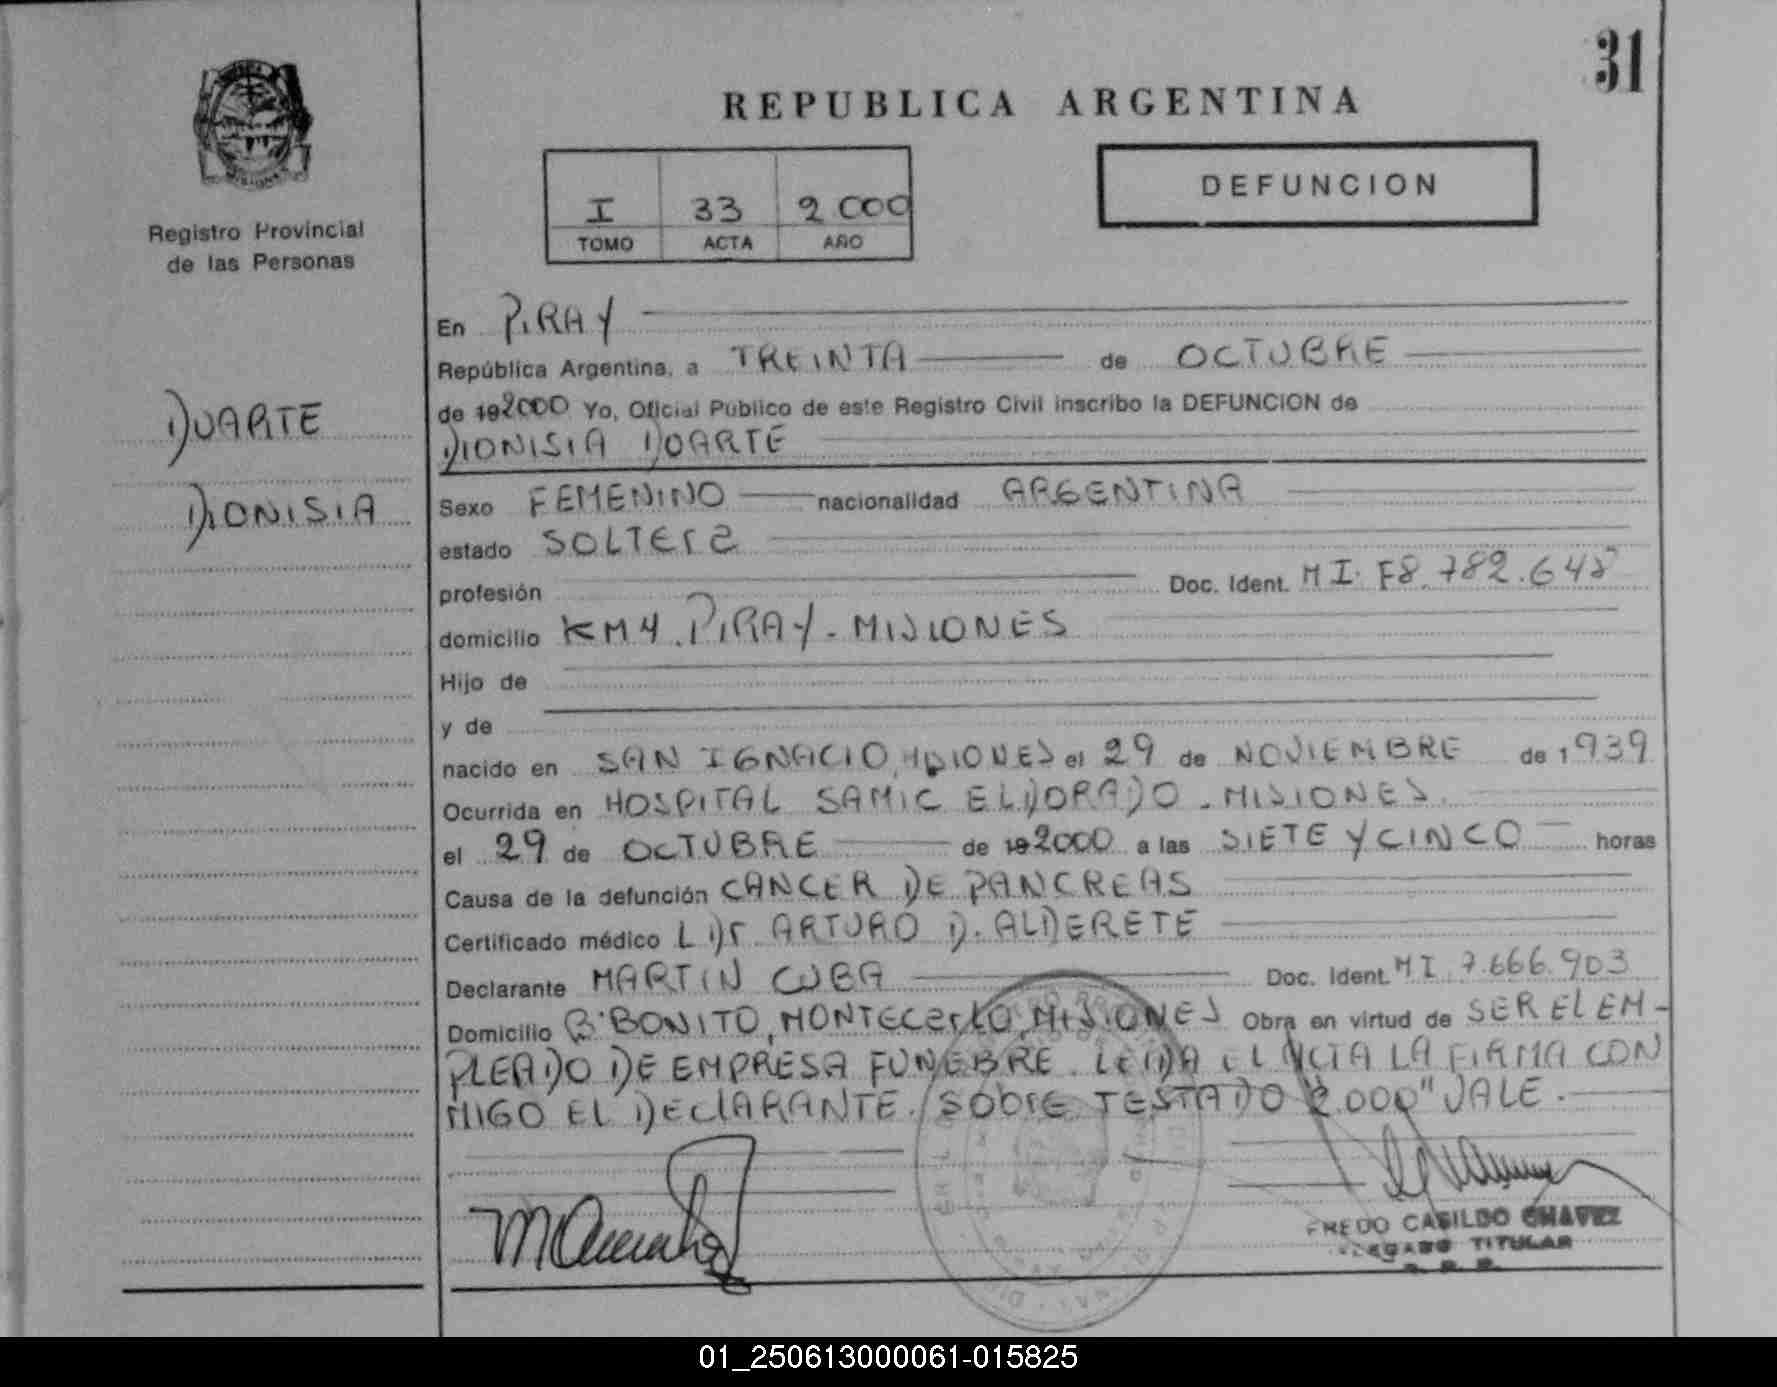 31
REPUBLICA ARGENTINA
I 33 2000
TOMO ACTA AÑO
DEFUNCION
Registro Provincial
de las Personas
DUARTE
DIONISIA
En PiRAY
República Argentina, a TREINTA de OCTUBRE
de 192000 Yo, Oficial Público de este Registro Civil inscribo la DEFUNCION de
DIONISIA DUARTE
Sexo FEMENINO nacionalidad ARGENTINA
estado SOLTERA
profesión Doc. Ident. M I. F8.782.648
domicilio KM 4. PIRAY - MISIONES
Hijo de
y de
nacido en SAN IGNACIO, MISIONES el 29 de NOVIEMBRE de 1939
Ocurrida en HOSPITAL SAMIC ELDORADO - MISIONES.
el 29 de OCTUBRE de 192000 a las SIETE Y CINCO horas
Causa de la defunción CANCER DE PANCREAS
Certificado médico L Dr ARTURO D. ALDERETE
Declarante MARTIN CUBA Doc. Ident. M I 7.666.903
Domicilio Bº BONITO, MONTECArLO, MISIONES Obra en virtud de SER EL EM-
PLEADO DE EMPRESA FUNEBRE. LEIDA EL ACTA LA FIRMA CON
MIGO EL DEClARANTE. SObrE TESTADO "2.000" VALE.
CASILDO CHAVEZ
TITULAR
01_250613000061-015825